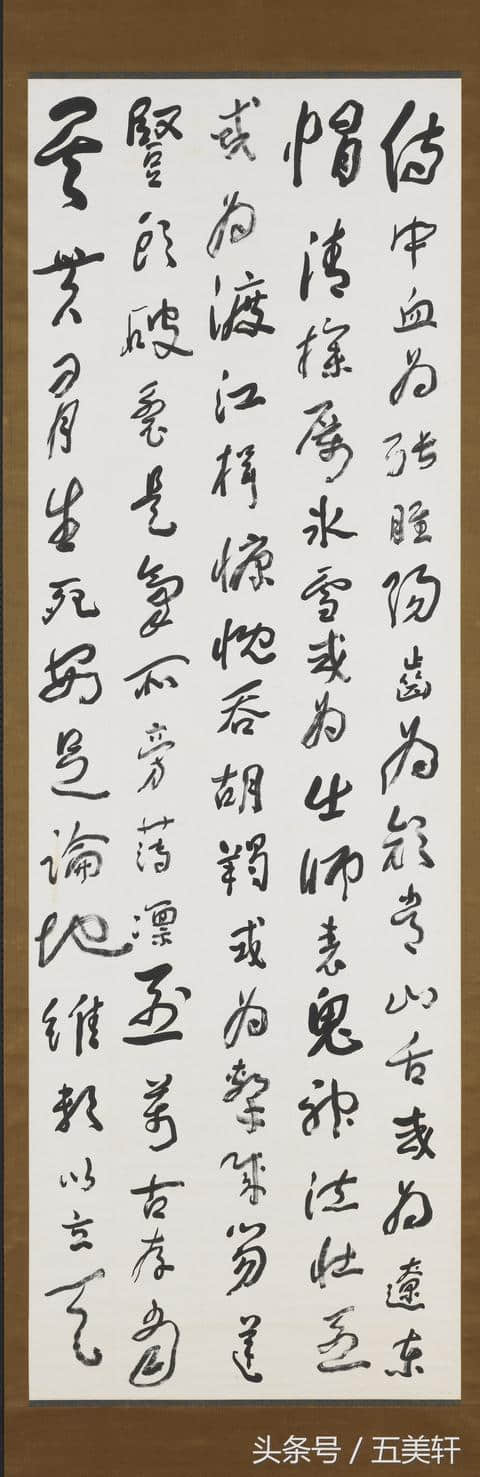 侍中血為張睢陽齒為顏常山舌或為遼東
帽清操厲冰雪或為出師表鬼神泣壯烈
或為渡江楫慷慨吞胡羯或為擊賊笏逆
豎頭破裂是氣所旁薄凜烈萬古存當
其貫日月生死安足論地維賴以立天
头条号 / 五美轩